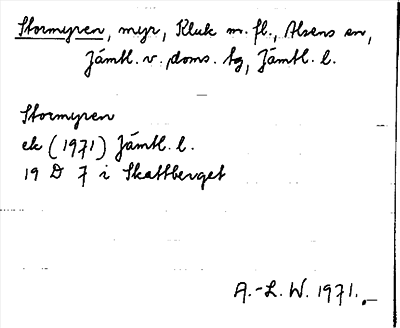 Stormyren, myr, Kluk m. fl., Alsens sn,
Jämtl. v. doms. tg, Jämtl. l.
Stormyren
ek (1971) Jämtl. l.
19 D 7 i Skattberget
A.-L. W. 1971.